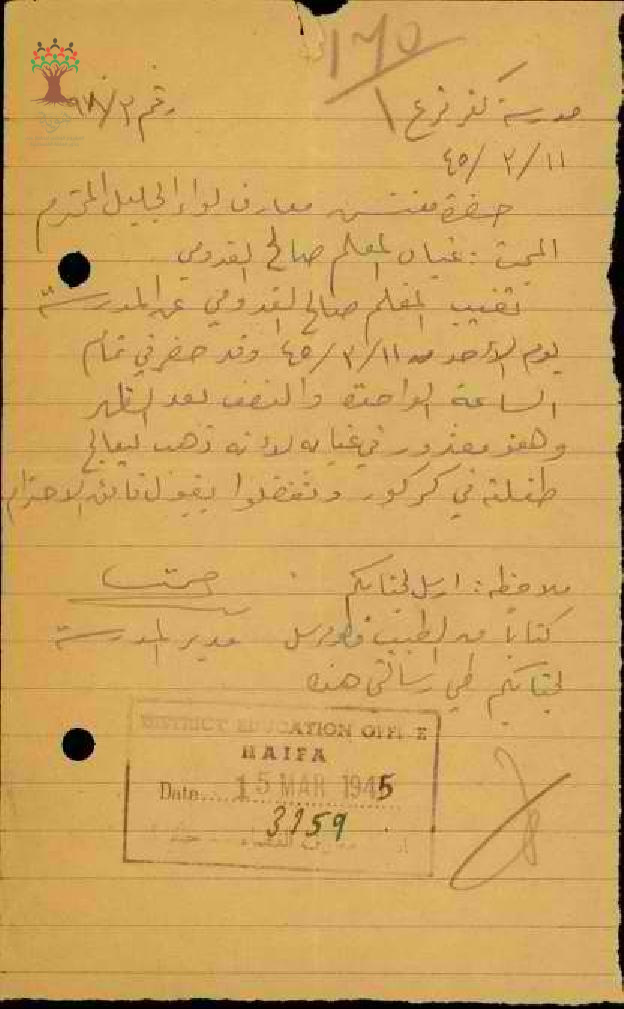 ١٦٥
مدرسة كفر قرع
رقم ٩٨/٢
٤٥/٣/١١
حضرة مفتش معارف لواء الجليل المحترم
المبحث : غياب المعلم صالح القدومي
تغيب المعلم صالح القدومي عن المدرسة
يوم الأحد من ٤٥/٣/١١ وقد حضر في تمام
الساعة الواحدة والنصف بعد الظهر
وهو معذور في غيابه لأنه ذهب ليعالج
طفلته في كركور وتفضلوا بقبول فائق الاحترام
ملاحظة : ارسل لجنابكم
كتابا من الطبيب مدير المدرسة
لجنابكم طي رسالتي هذه
DISTRICT EDUCATION OFFICE
HAIFA
Date.....15 MAR 1945
3959